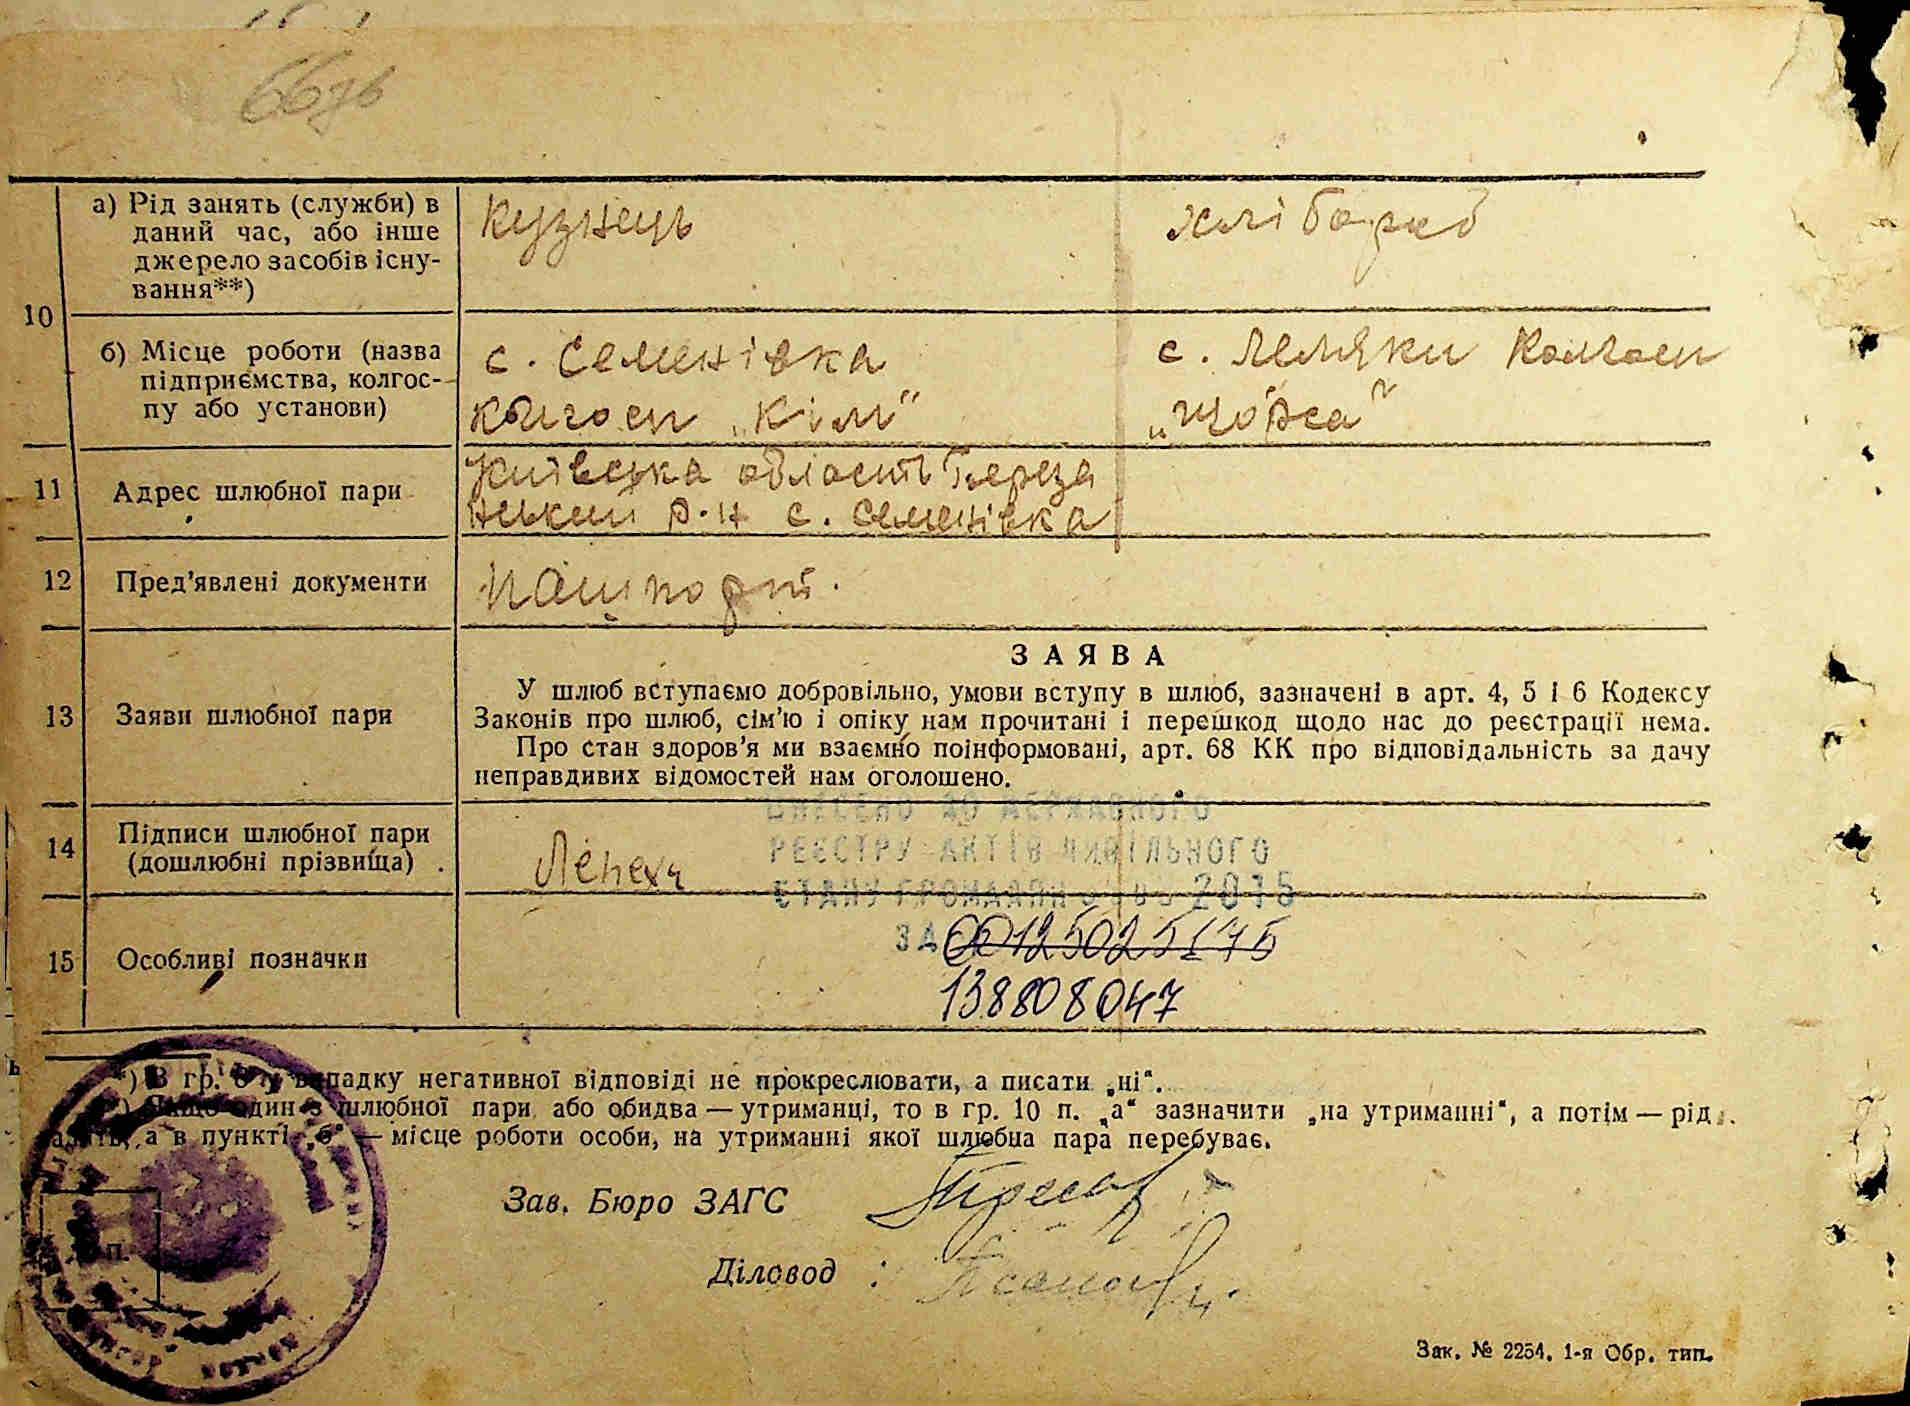 66зв
а) Рід занять (служби) в
даний час, або інше
джерело засобів існу-
вання**)
Кузнець
хлібороб
10
б) Місце роботи (назва
підприємства, колгос-
пу або установи)
с. Семенівка
колгосп „Кім"
с. Лемяки Колгосп
„Щорса"
11
Адрес шлюбної пари
Київська область Береза
нський р-н с. Семенівка
12
Пред'явлені документи
Пашпорт.
13
Заяви шлюбної пари
ЗАЯВА
У шлюб вступаємо добровільно, умови вступу в шлюб, зазначені в арт. 4, 5 і 6 Кодексу
Законів про шлюб, сім'ю і опіку нам прочитані і перешкод щодо нас до реєстрації нема.
Про стан здоров'я ми взаємно поінформовані, арт. 68 КК про відповідальність за дачу
неправдивих відомостей нам оголошено.
14
Підписи шлюбної пари
(дошлюбні прізвища)
Лепеха
ВНЕСЕНО ДО ДЕРЖАВНОГО
РЕЄСТРУ АКТІВ ЦИВІЛЬНОГО
СТАНУ ГРОМАДЯН 2015
ЗА 00125025175
138808047
15
Особливі позначки
*) В гр. 8 у випадку негативної відповіді не прокреслювати, а писати „ні".
**) Якщо один з шлюбної пари або обидва — утриманці, то в гр. 10 п. „а" зазначити „на утриманні", а потім — рід
занять, а в пункті „б" — місце роботи особи, на утриманні якої шлюбна пара перебуває.
Зав. Бюро ЗАГС
Діловод :
М. П.
Зак. № 2254. 1-я Обр. тип.